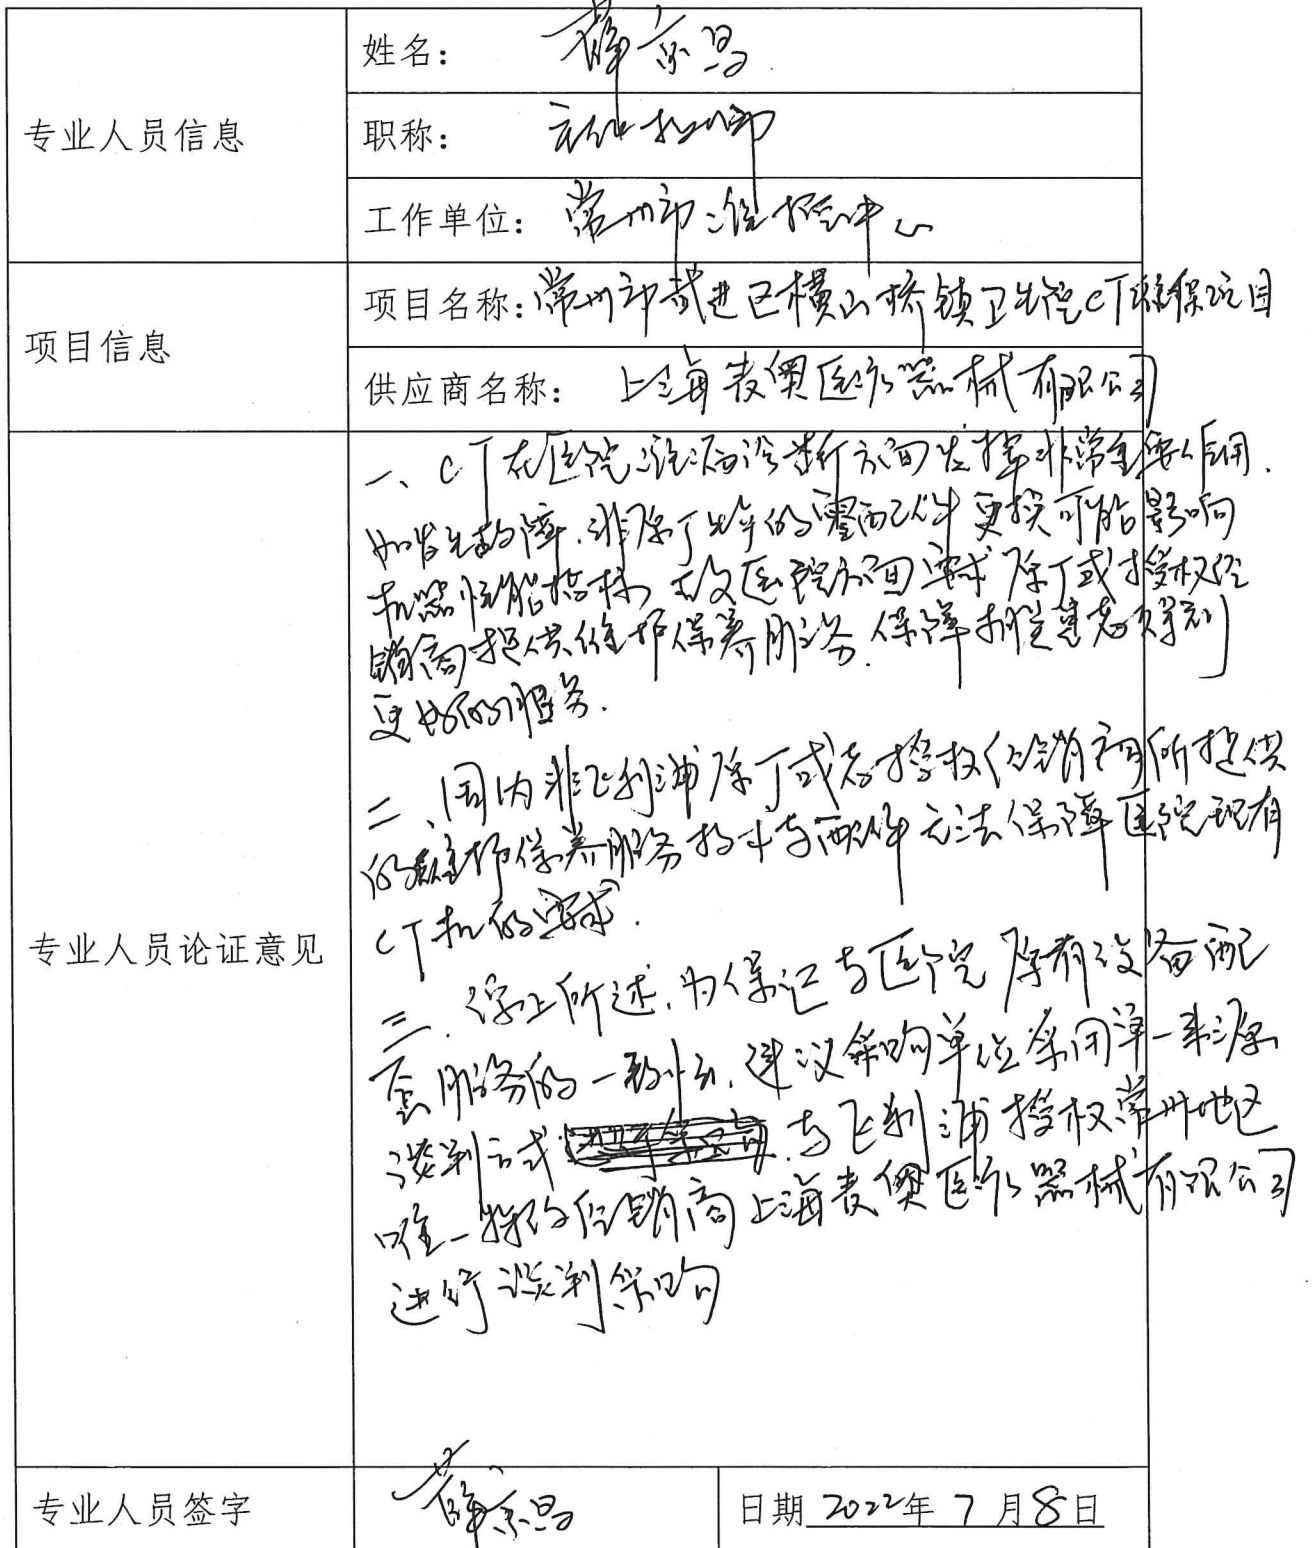 专业人员信息
姓名：薛京昌
职称：主任技师
工作单位：常州市疾控中心
项目信息
项目名称：常州市武进区横山桥镇卫生院CT维保项目
供应商名称：上海表奥医疗器械有限公司
专业人员论证意见
一、CT在医院治病诊断方面发挥非常重要作用.
如发生故障.非原厂生产的零配件更换可能影响
机器性能指标,故医院方面要求原厂或授权经
销商提供维护保养服务.保障患者得到
更好的服务.
二、国内非飞利浦原厂或者授权经销商所提供
的维护保养服务技术与配件无法保障医院现有
CT机的要求.
三.综上所述,为保证与医院原有设备配
套服务的一致性,建议采购单位采用单一来源
谈判方式 与飞利浦授权常州地区
唯一授权经销商上海表奥医疗器械有限公司
进行谈判采购
专业人员签字
薛京昌
日期 2022年7月8日